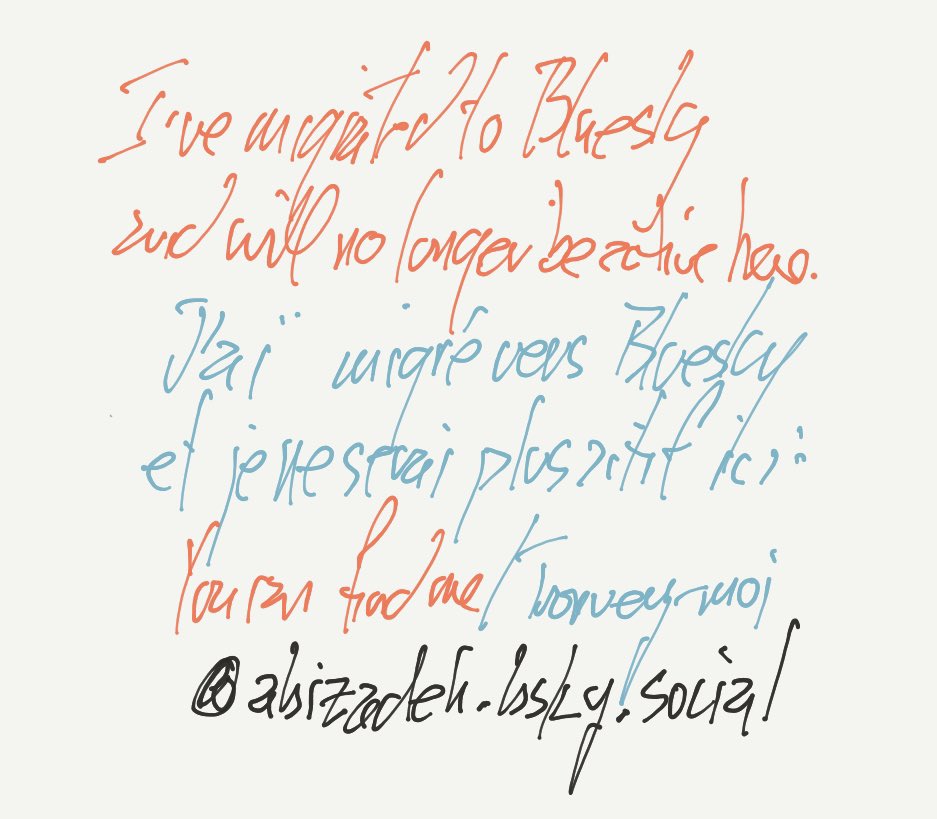 I've migrated to Bluesky
and will no longer be active here.
J'ai migré vers Bluesky
et je ne serai plus actif ici:
You can find me / trouvez-moi
@abizadeh.bsky.social